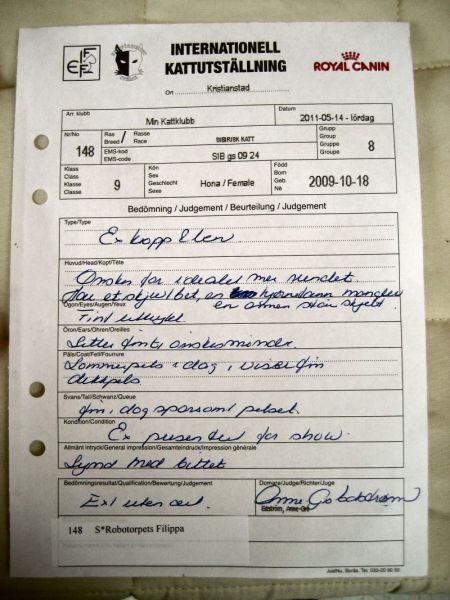 FIFe
INTERNATIONELL
KATTUTSTÄLLNING
ROYAL CANIN
Ort Kristianstad
Arr. klubb
Min Kattklubb
Datum
2011-05-14 - lördag
Nr/No
148
Ras / Rasse
Breed / Race
SIBIRISK KATT
EMS-kod
EMS-code
SIB gs 09 24
Grupp
Group
Gruppe
Groupe
8
Klass
Class
Klasse
Classe
9
Kön
Sex
Geschlecht
Sexe
Hona / Female
Född
Born
Geb.
Né
2009-10-18
Bedömning / Judgement / Beurteilung / Jugement
Type/Type
Ex kropp &
Huvud/Head/Kopf/Tête
Önskar för idealet mer rundat.
Har et skjevt bet, en hjørnetann mangler
Ögon/Eyes/Augen/Yeux
en annen står skjevt.
Fint uttrykk
Öron/Ears/Ohren/Oreilles
Sitter fint, ønskes mindre.
Päls/Coat/Fell/Fourrure
Sommerpels i dag, viser fin
dekkpels
Svans/Tail/Schwanz/Queue
fin, i dag sparsomt pelset.
Kondition/Condition
Ex presentert for show.
Allmänt intryck/General impression/Gesamteindruck/Impression générale
Synd med bittet
Bedömningsresultat/Qualification/Bewertung/Jugement
Ex1 uten cert.
Domare/Judge/Richter/Juge
Edström, Anne-Gro
148 S*Robotorpets Filippa
JustNu, Borås. Tel. 033-20 90 50